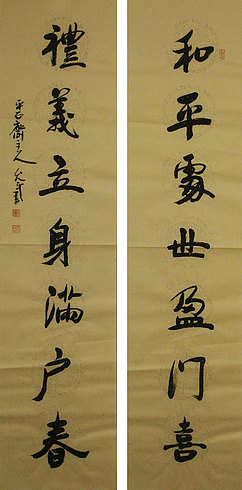 和平處世盈门喜
禮義立身满户春